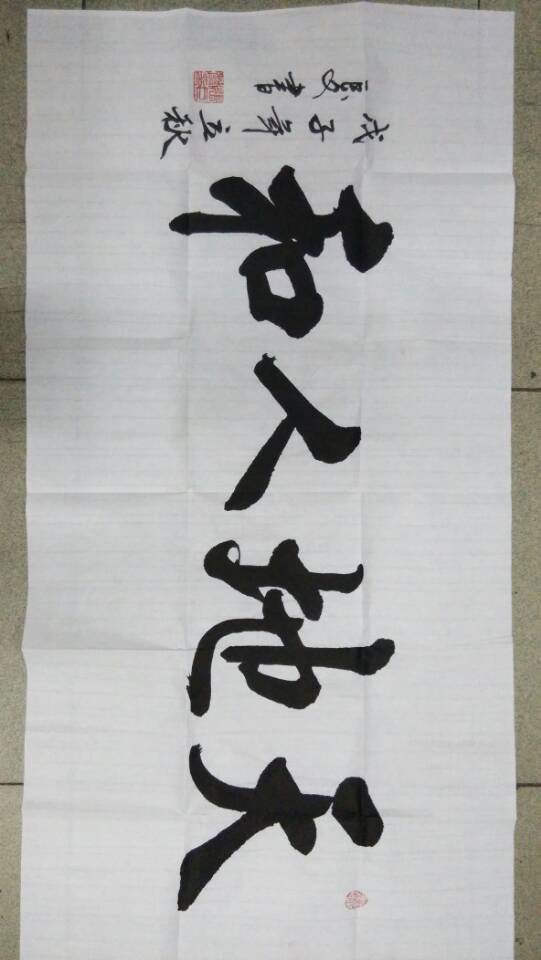 天地人和
戊子年立秋
書